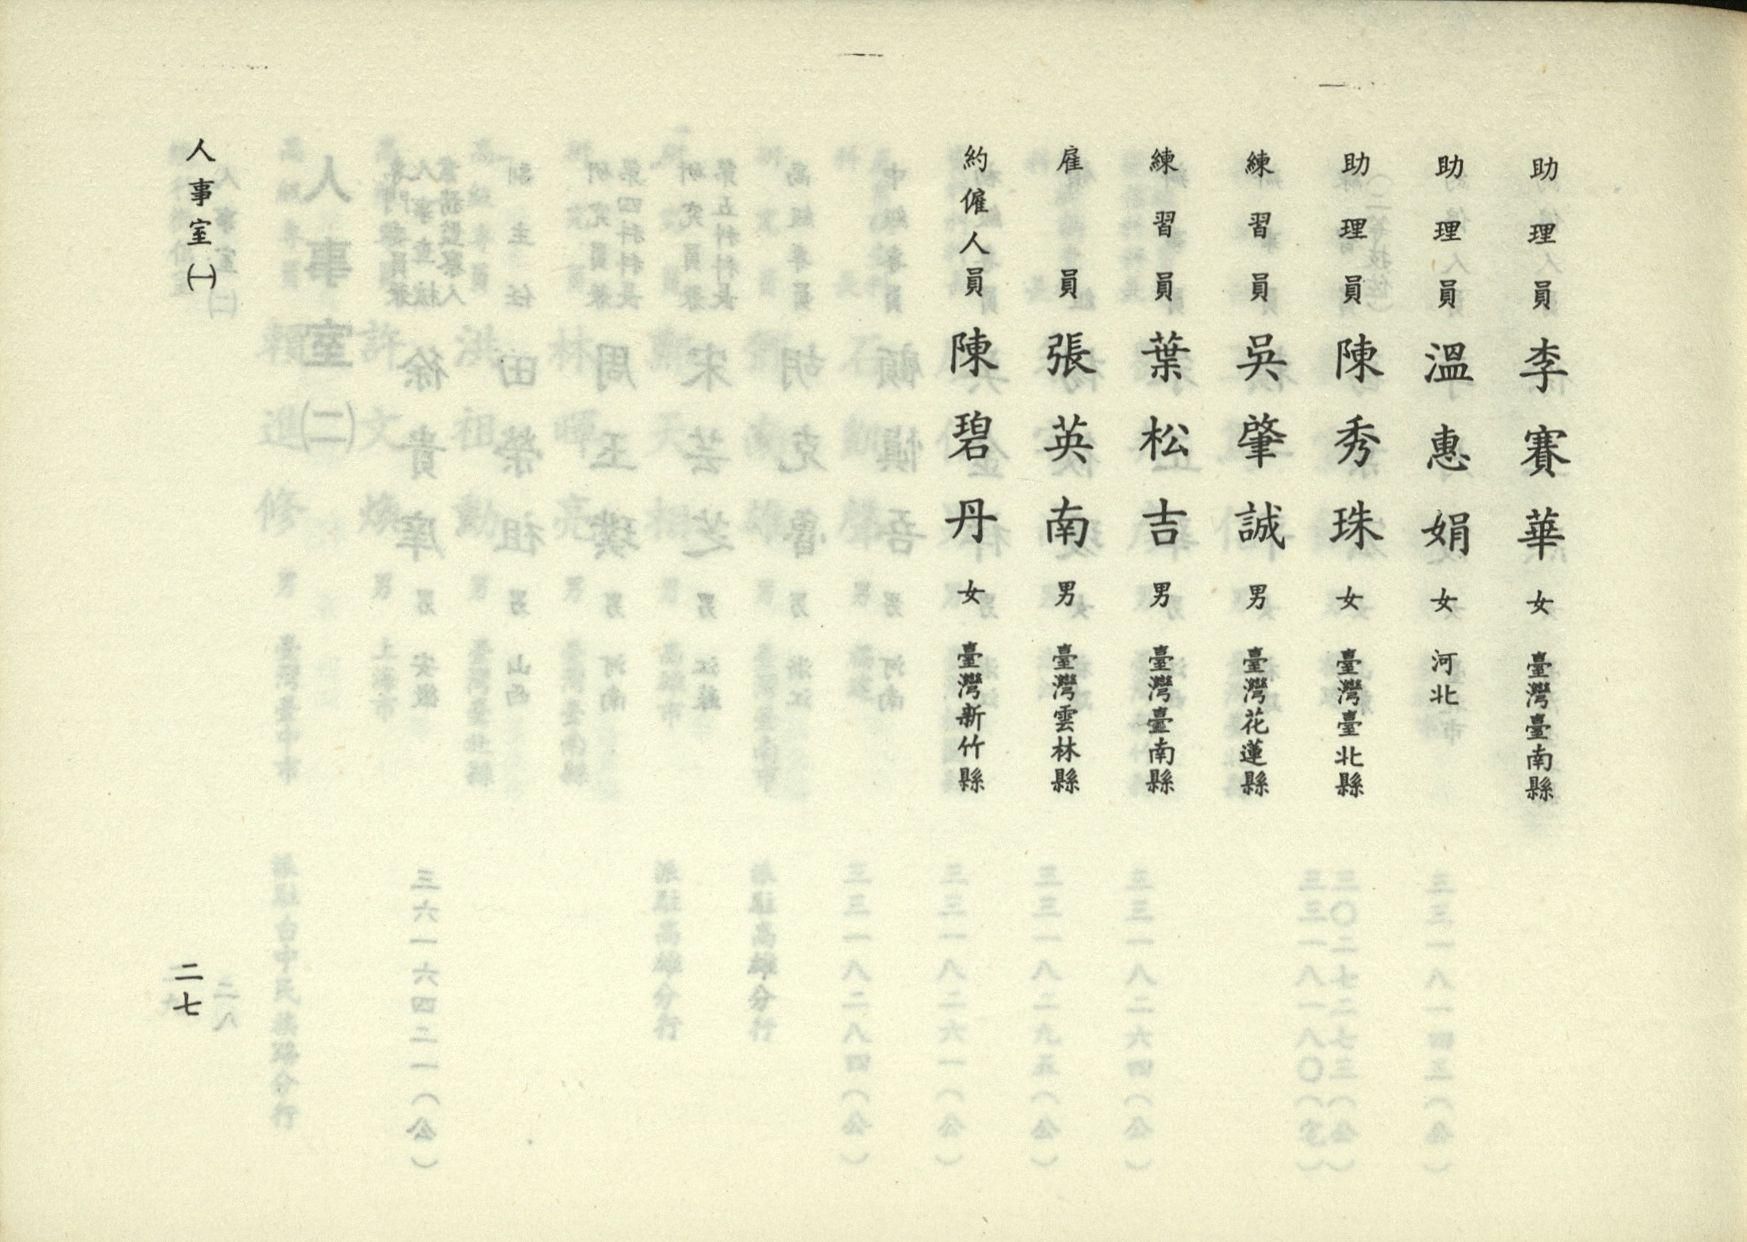 助理員李賽華女臺灣臺南縣
助理員溫惠娟女河北
助理員陳秀珠女臺灣臺北縣
練習員吳肇誠男臺灣花蓮縣
練習員葉松吉男臺灣臺南縣
雇員張英南男臺灣雲林縣
約僱人員陳碧丹女臺灣新竹縣
人事室㈠
二七